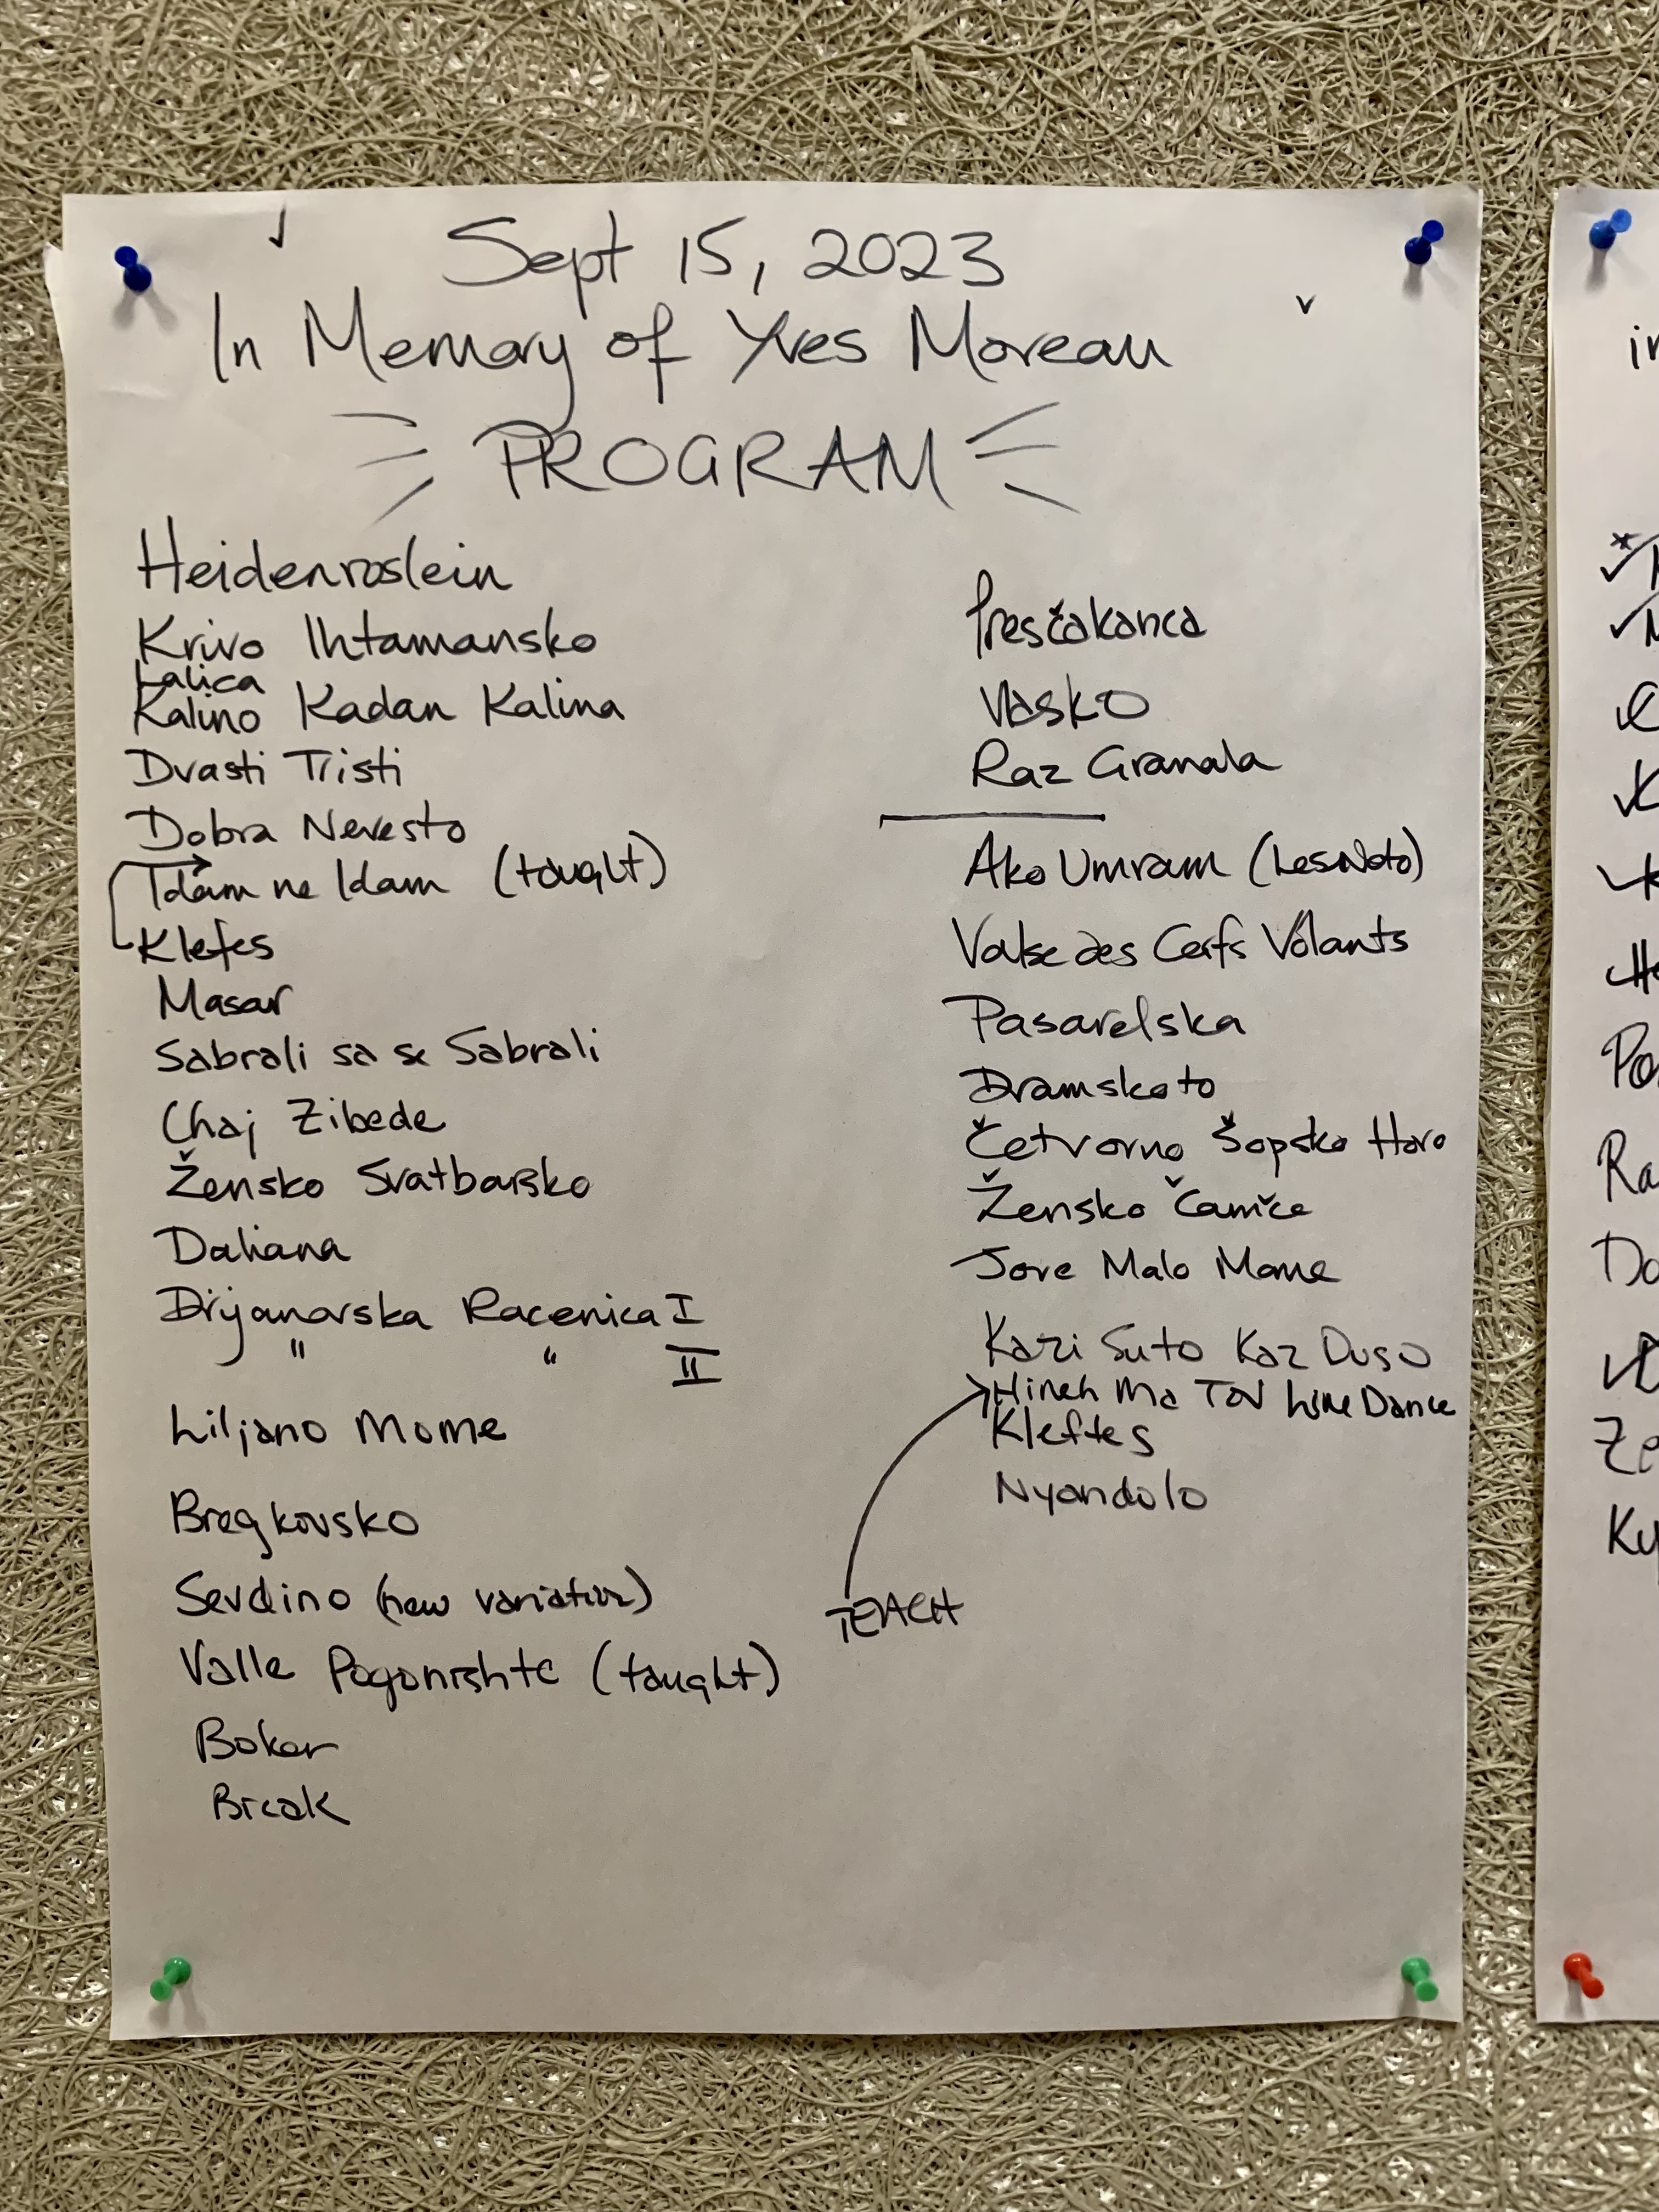 Sept 15, 2023
In Memory of Yves Moreau
PROGRAM
Heidenroslein
Krivo Ihtamansko
Lalica
Kalino Kadan Kalina
Dvasti Tristi
Dobra Nevesto
Idam ne Idam (taught)
Kleftes
Masar
Sabrali sa se Sabrali
Chaj Zibede
Žensko Svatbarsko
Daliana
Drijanovska Racenica I
" " II
Liljano Mome
Bregkovsko
Sevdino (new variation)
Valle Pogonishte (taught)
Boker
Break
Presčakanca
Vlasko
Raz Granala
Ako Umram (Lesnoto)
Valse des Cerfs Volants
Pasarelska
Dramskoto
Četvorno Šopsko Horo
Žensko Čamče
Jove Malo Mome
Kazi Suto Kaz Duso
Hineh Ma Tov Line Dance
Kleftes
Nyandolo
TEACH
in
Ra
Do
Ze
Ky